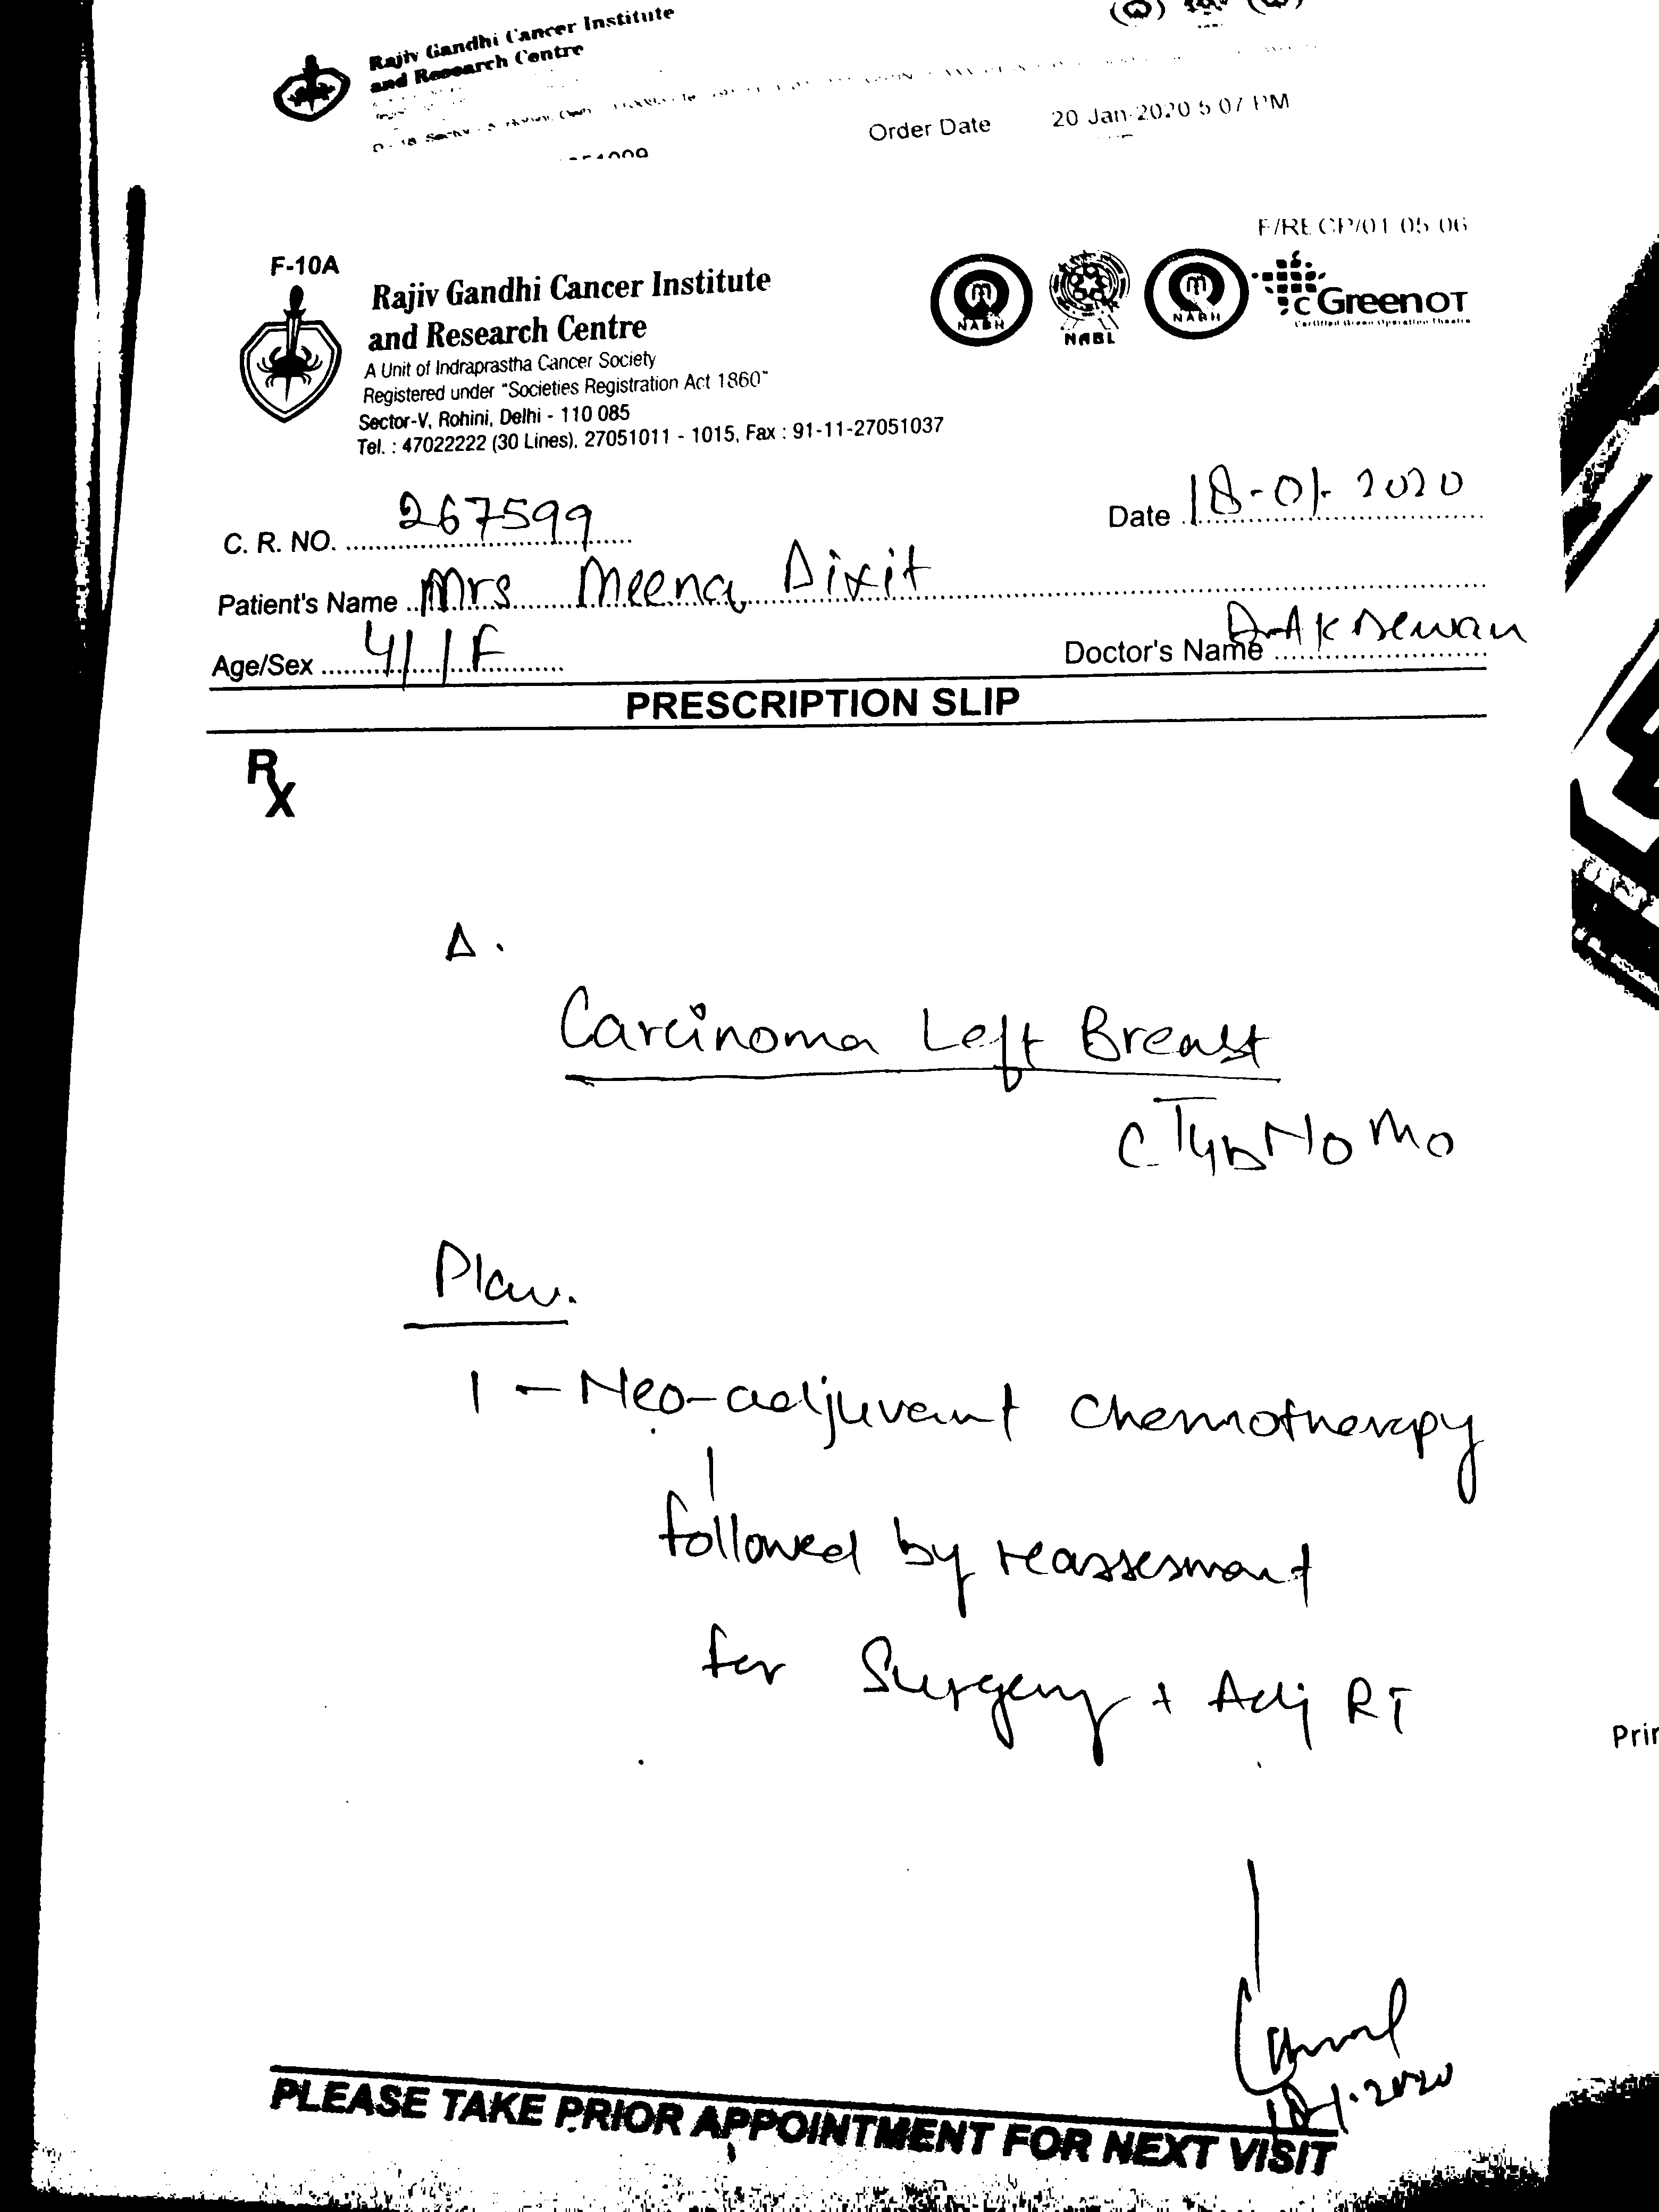 Rajiv Gandhi Cancer Institute
and Research Centre
Order Date 20 Jan-2020 5 07 PM
F/RECP/01 05 06
F-10A
Rajiv Gandhi Cancer Institute
and Research Centre
A Unit of Indraprastha Cancer Society
Registered under "Societies Registration Act 1860"
Sector-V, Rohini, Delhi - 110 085
Tel. : 47022222 (30 Lines), 27051011 - 1015, Fax : 91-11-27051037
NABH NABL NABH cGreenOT
Certified Green Operation Theatre
C. R. NO. 267599 Date 18-01-2020
Patient's Name Mrs Meena Dixit
Age/Sex 41/F Doctor's Name Dr A K Dewan
PRESCRIPTION SLIP
Rx
Δ.
Carcinoma Left Breast
cT4bN0M0
Plan.
1 - Neo-adjuvant chemotherapy
followed by reassesment
for Surgery + Adj RT
18-1-2020
PLEASE TAKE PRIOR APPOINTMENT FOR NEXT VISIT